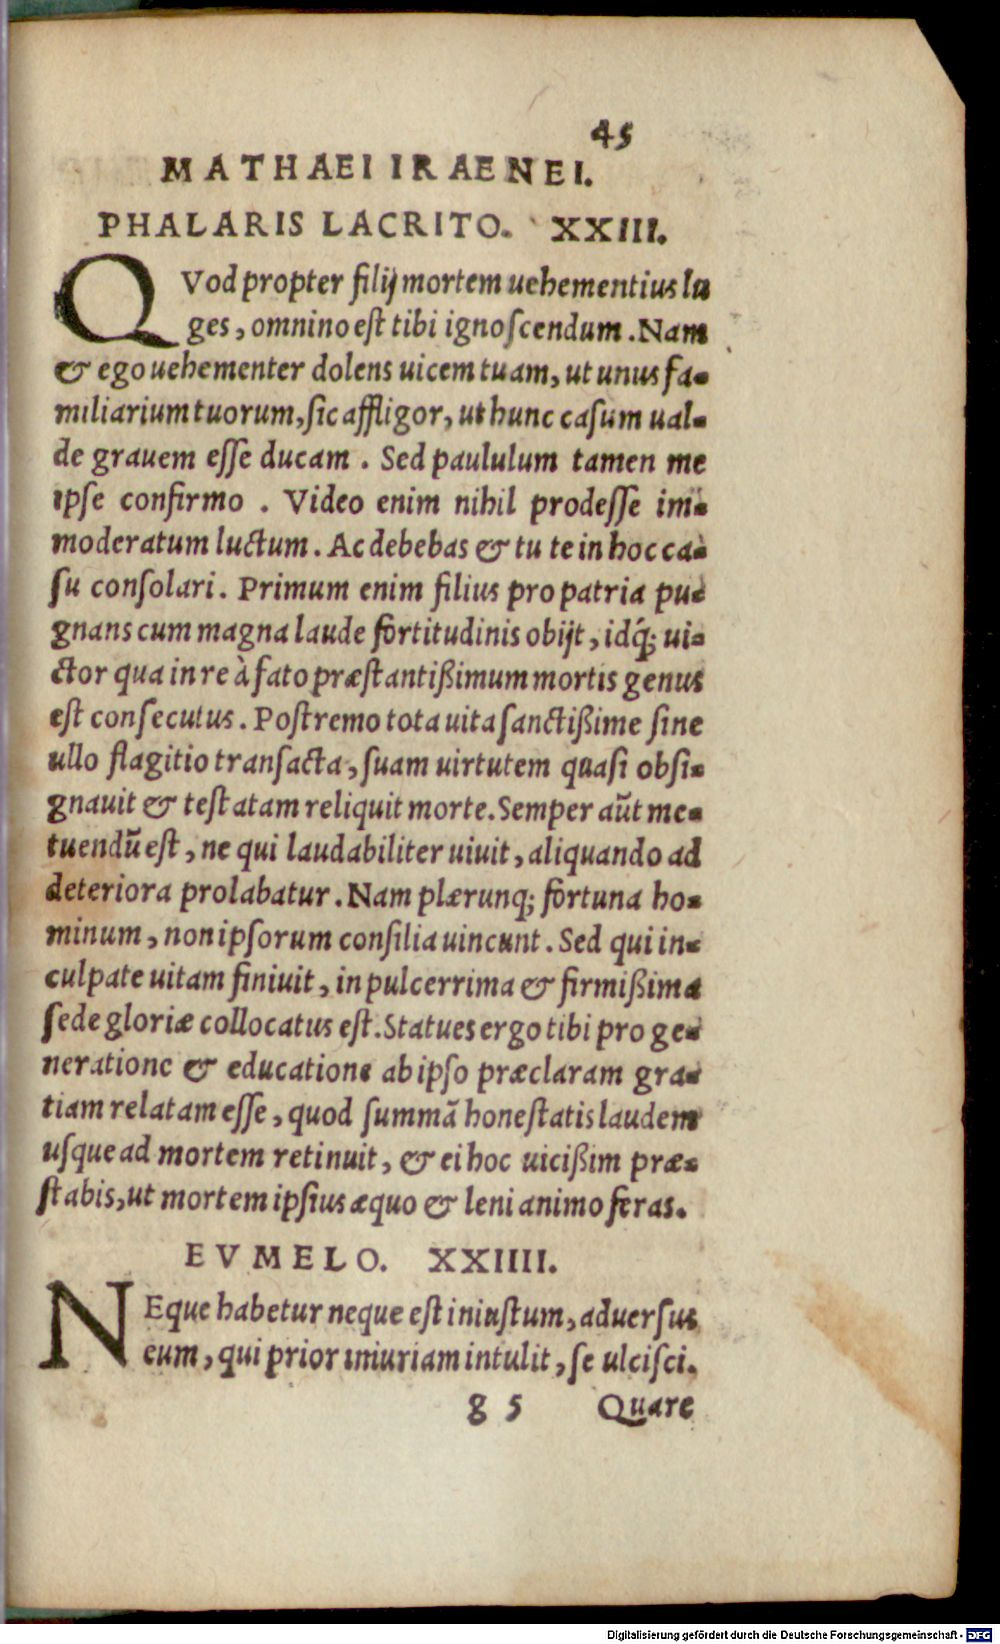 45
MATHAEI IRAENEI.
PHALARIS LACRITO. XXIII.
QVod propter filij mortem uehementius lu
ges, omnino est tibi ignoscendum. Nam
& ego uehementer dolens uicem tuam, ut unus fa-
miliarium tuorum, sic affligor, ut hunc casum ual-
de grauem esse ducam. Sed paululum tamen me
ipse confirmo. Video enim nihil prodesse im-
moderatum luctum. Ac debebas & tu te in hoc ca-
su consolari. Primum enim filius pro patria pu-
gnans cum magna laude fortitudinis obijt, idq́; ui-
ctor qua in re à fato præstantißimum mortis genus
est consecutus. Postremo tota uita sanctißime sine
ullo flagitio transacta, suam uirtutem quasi obsi-
gnauit & testatam reliquit morte. Semper aũt me-
tuendũ est, ne qui laudabiliter uiuit, aliquando ad
deteriora prolabatur. Nam plærunq; fortuna ho-
minum, non ipsorum consilia uincunt. Sed qui in-
culpate uitam finiuit, in pulcerrima & firmißima
sede gloriæ collocatus est. Statues ergo tibi pro ge-
neratione & educatione ab ipso præclaram gra-
tiam relatam esse, quod summã honestatis laudem
usque ad mortem retinuit, & ei hoc uicißim præ-
stabis, ut mortem ipsius æquo & leni animo feras.
EVMELO. XXIIII.
NEque habetur neque est iniustum, aduersus
eum, qui prior iniuriam intulit, se ulcisci.
g 5 Quare
Digitalisierung gefördert durch die Deutsche Forschungsgemeinschaft - DFG